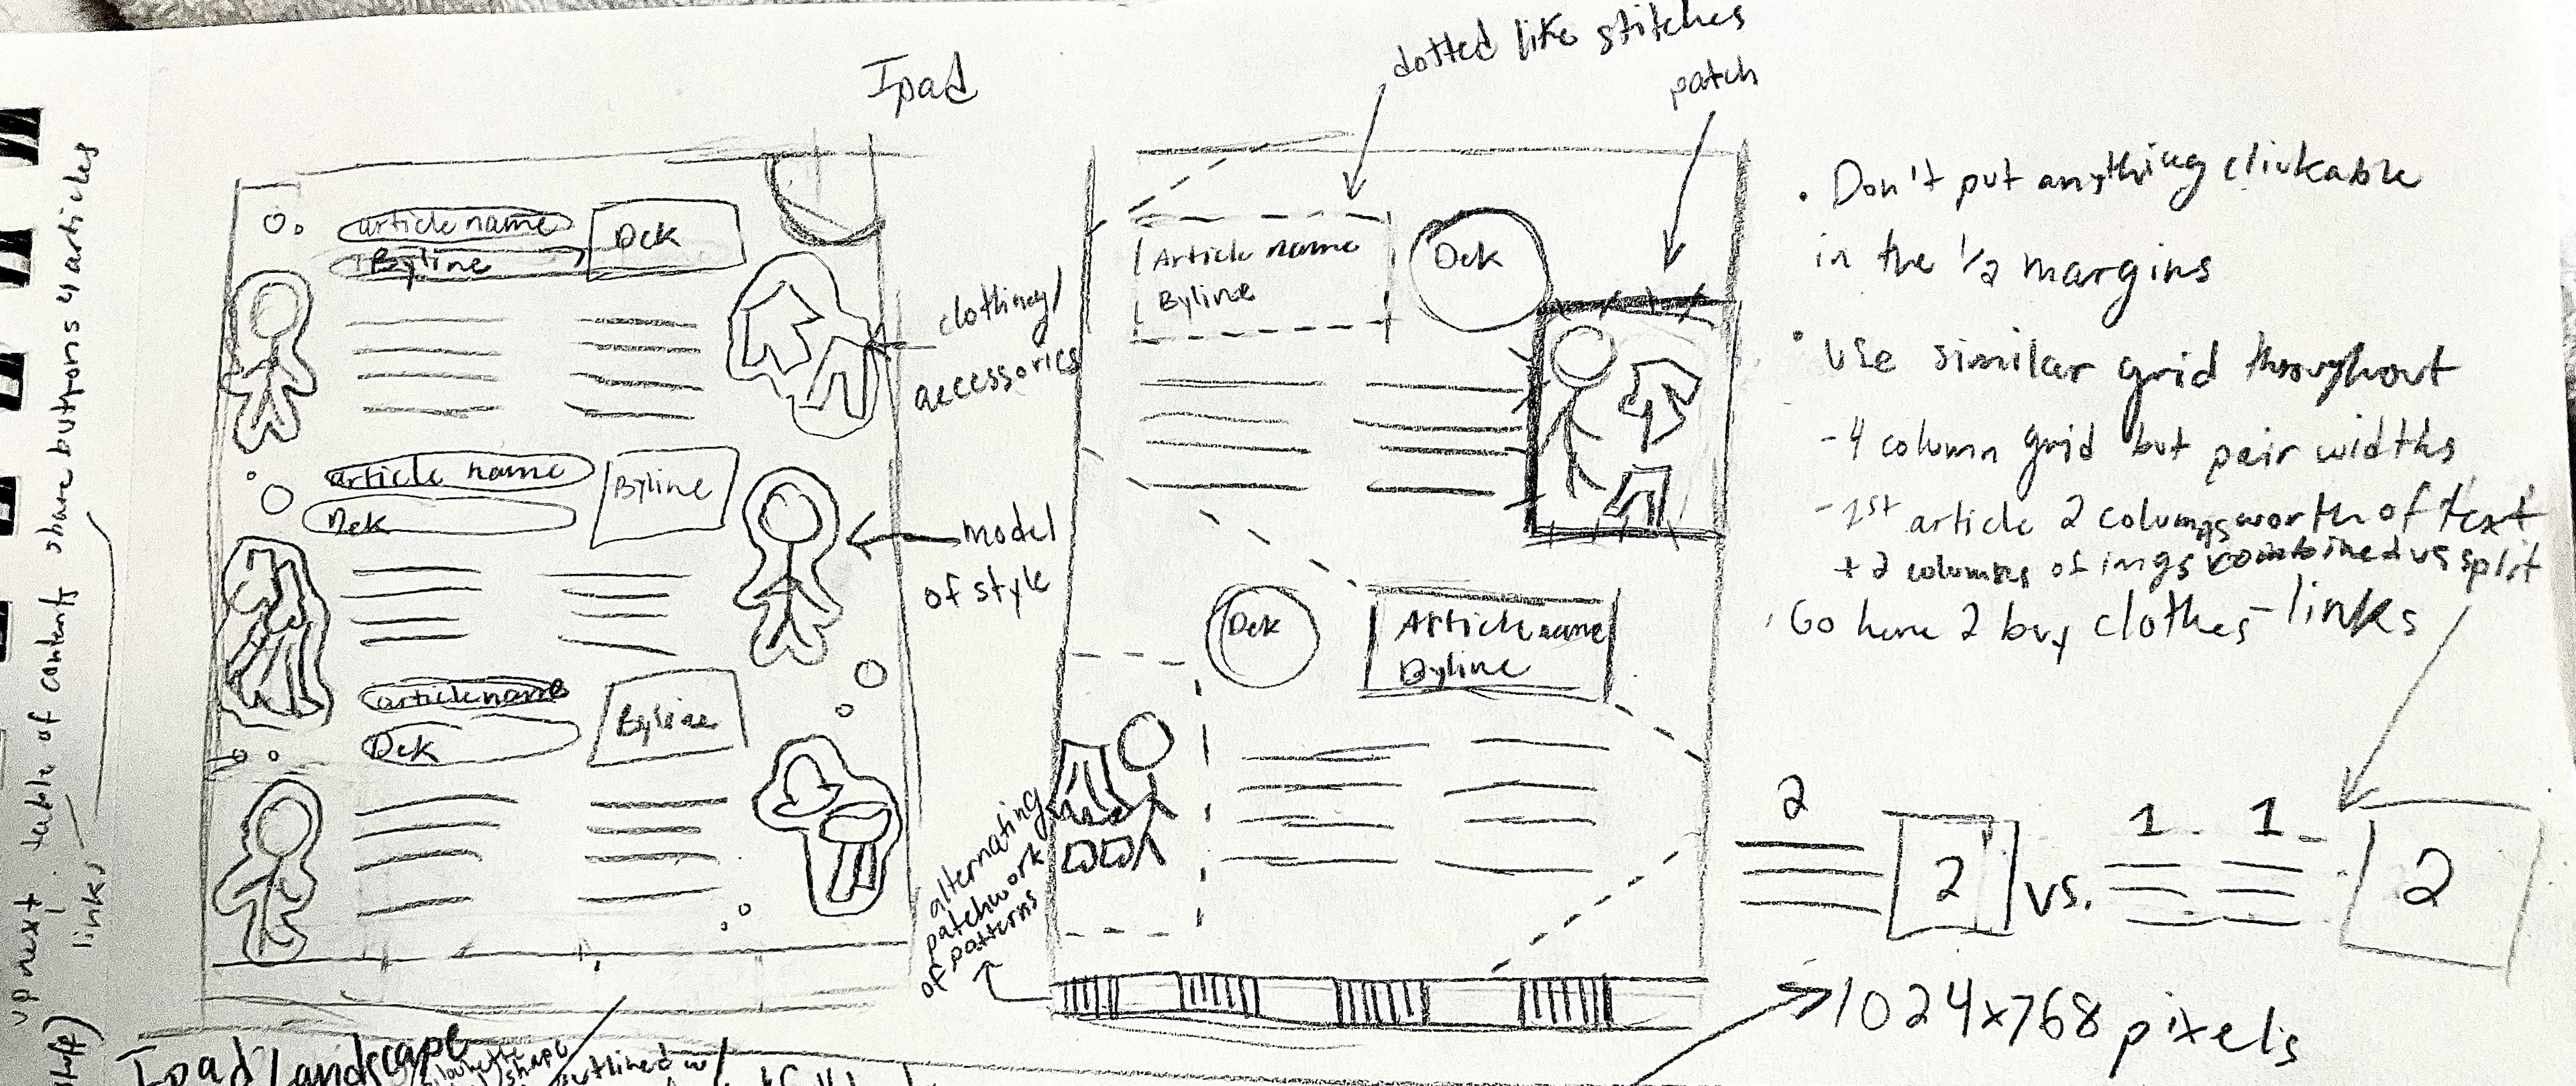 Ipad
dotted like stitches
patch
article name
Byline
Dek
clothing/
accessories
article name
Dek
Byline
model
of style
article name
Dek
Byline
Article name
Byline
Dek
Dek
Article name
Byline
alternating
patchwork
of patterns
• Don't put anything clickable
in the 1/2 margins
• Use similar grid throughout
- 4 column grid but pair widths
- 1st article 2 columns worth of text
+ 2 columns of imgs combined vs split
• Go here 2 buy clothes - links
2
2
vs.
1
1
2
1024x768 pixels
up next
table of contents
share buttons 4 articles
links
stuff)
Ipad Landscape
shape
outlined w/